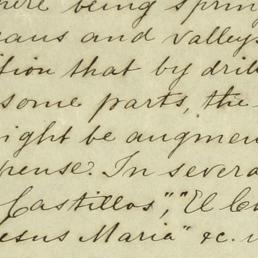 here being sprin
eans and valleys
tion that by drill
some parts, the
ight be augmen
pense? In severa
Castillos", "El C
esus Maria" &c.